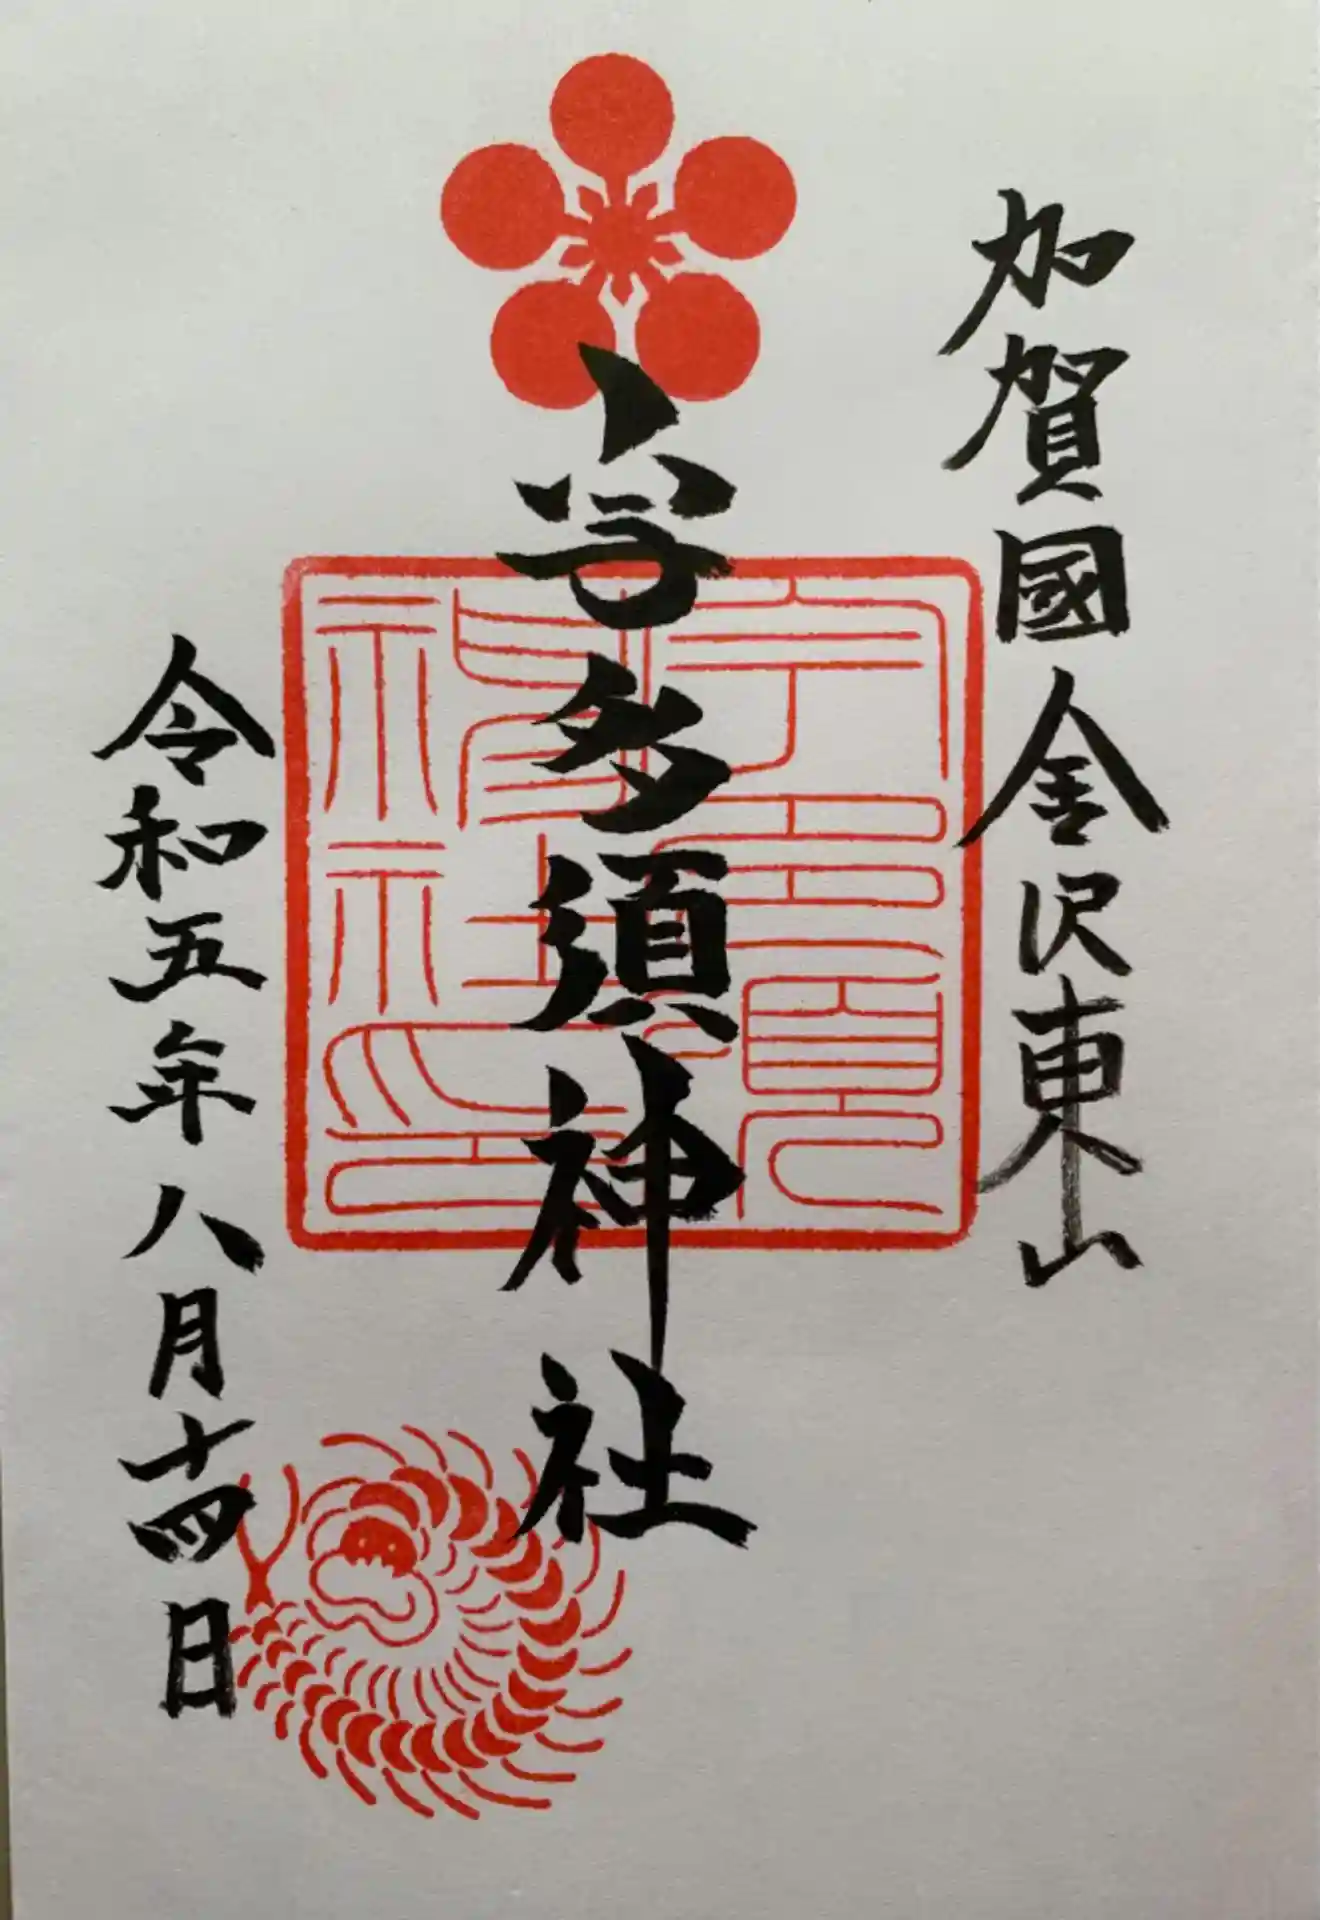 加賀國金沢東山
宇多須神社
令和五年八月十四日
宇多須
神社
神社印